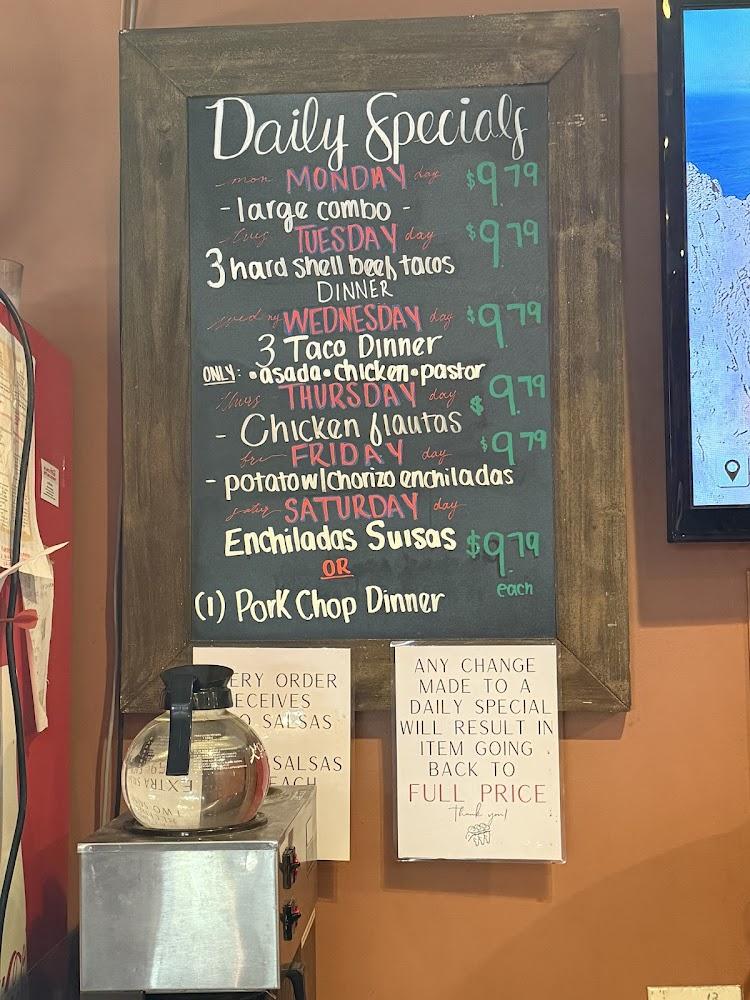 Daily Specials
mon MONDAY day $9.79
- large combo -
tues TUESDAY day $9.79
3 hard shell beef tacos
DINNER
wedny WEDNESDAY day $9.79
3 Taco Dinner
ONLY: •asada•chicken•pastor
thurs THURSDAY day $9.79
- Chicken flautas
fri FRIDAY day $9.79
- potato w/chorizo enchiladas
satur SATURDAY day
Enchiladas Suisas $9.79
OR each
(1) Pork Chop Dinner
ERY ORDER
ECEIVES
O SALSAS
SALSAS
EACH
ANY CHANGE
MADE TO A
DAILY SPECIAL
WILL RESULT IN
ITEM GOING
BACK TO
FULL PRICE
Thank you!